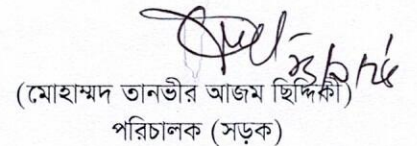 (মোহাম্মদ তানভীর আজম ছিদ্দিকী)
পরিচালক (সড়ক)